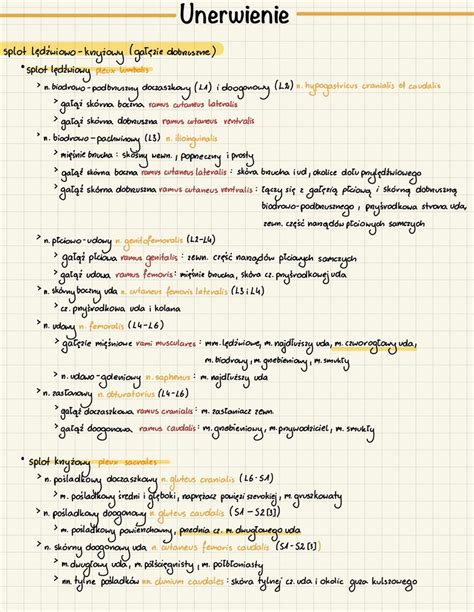 Unerwienie
splot lędźwiowo-krzyżowy (gałęzie dobrzuszne)
• splot lędźwiowy plexus lumbalis
> n. biodrowo-podbrzuszny doczaszkowy (L1) i doogonowy (L2) n. hypogastricus cranialis et caudalis
> gałąź skórna boczna ramus cutaneus lateralis
> gałąź skórna dobrzuszna ramus cutaneus ventralis
> n. biodrowo-pachwinowy (L3) n. ilioinguinalis
> mięśnie brzucha: skośny wewn., poprzeczny i prosty
> gałąź skórna boczna ramus cutaneus lateralis: skóra brzucha i ud, okolice dołu przylędźwiowego
> gałąź skórna dobrzuszna ramus cutaneus ventralis: łączy się z gałęzią płciową i skórną dobrzuszną
biodrowo-podbrzusznego, przyśrodkowa strona uda,
zewn. część narządów płciowych samczych
> n. płciowo-udowy n. genitofemoralis (L2-L4)
> gałąź płciowa ramus genitalis: zewn. część narządów płciowych samczych
> gałąź udowa ramus femoris: mięśnie brzucha, skóra cz. przyśrodkowej uda
> n. skórny boczny uda n. cutaneus femoris lateralis (L3 i L4)
> cz. przyśrodkowa uda i kolana
> n. udowy n. femoralis (L4-L6)
> gałęzie mięśniowe rami musculares: mm. lędźwiowe, m. najdłuższy uda, m. czworogłowy uda,
m. biodrowy, m. grzebieniowy, m. smukły
> n. udowo-goleniowy n. saphenus: m. najdłuższy uda
> n. zasłonowy n. obturatorius (L4-L6)
> gałąź doczaszkowa ramus cranialis: m. zasłaniacz zewn.
> gałąź doogonowa ramus caudalis: m. grzebieniowy, m. przywodziciel, m. smukły
• splot krzyżowy plexus sacrales
> n. pośladkowy doczaszkowy n. gluteus cranialis (L6-S1)
> m. pośladkowy średni i głęboki, naprężacz powięzi szerokiej, m. gruszkowaty
> n. pośladkowy doogonowy n. gluteus caudalis (S1-S2[3])
> m. pośladkowy powierzchowny, przednia cz. m. dwugłowego uda
> n. skórny doogonowy uda n. cutaneus femoris caudalis (S1-S2[3])
> m. dwugłowy uda, m. półścięgnisty, m. półbłoniasty
> nn. tylne pośladków nn. clunium caudales: skóra tylnej cz. uda i okolic guza kulszowego